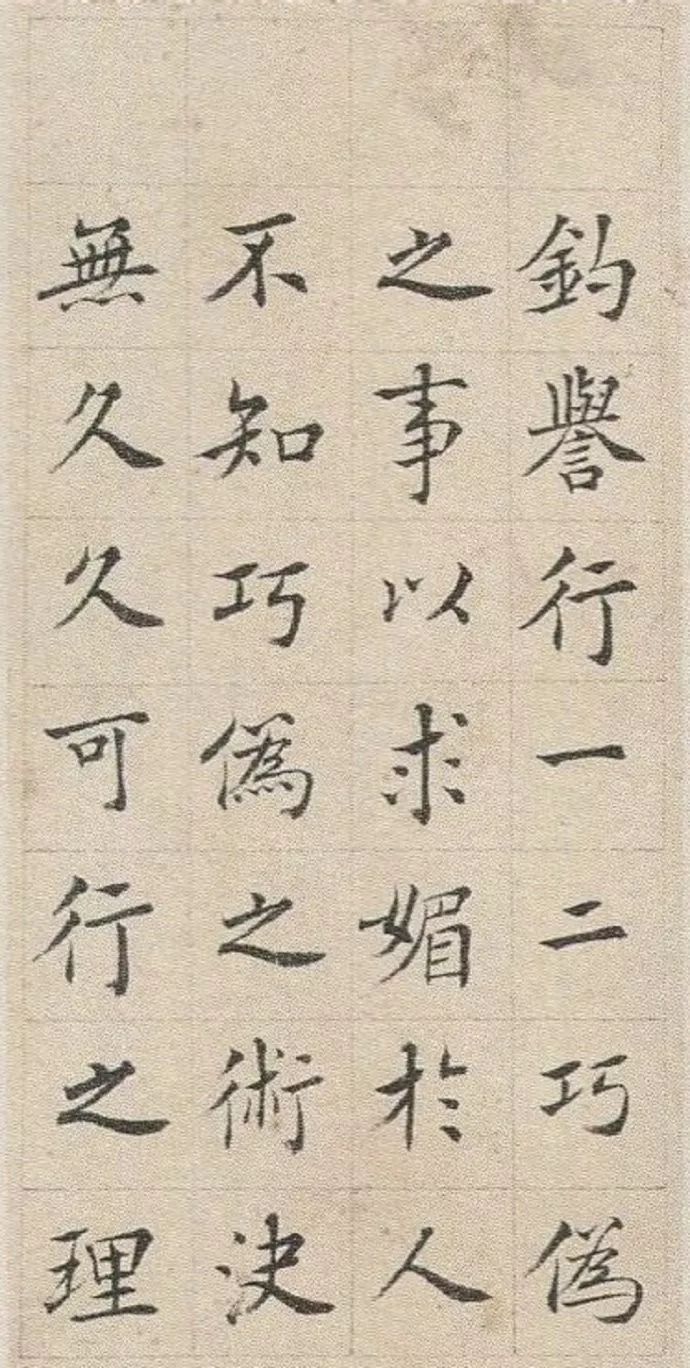 釣譽行一二巧偽
之事以求媚於人
不知巧偽之術決
無久久可行之理